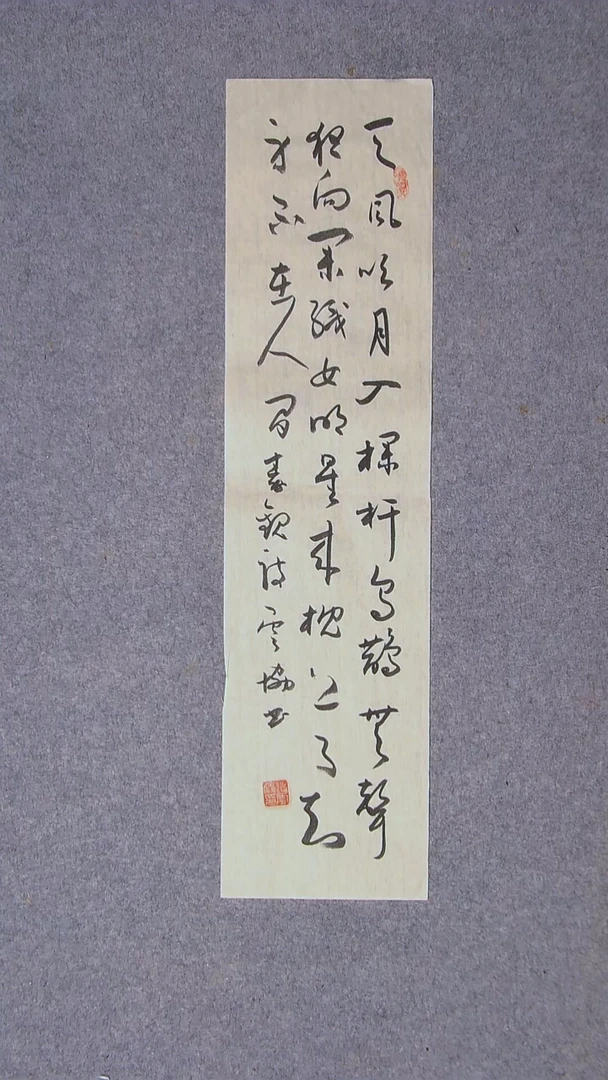 天風吹月入欄杆烏鵲無聲
夜向闌織女明星來枕上了知
身不在人間秦觀詩雲協書